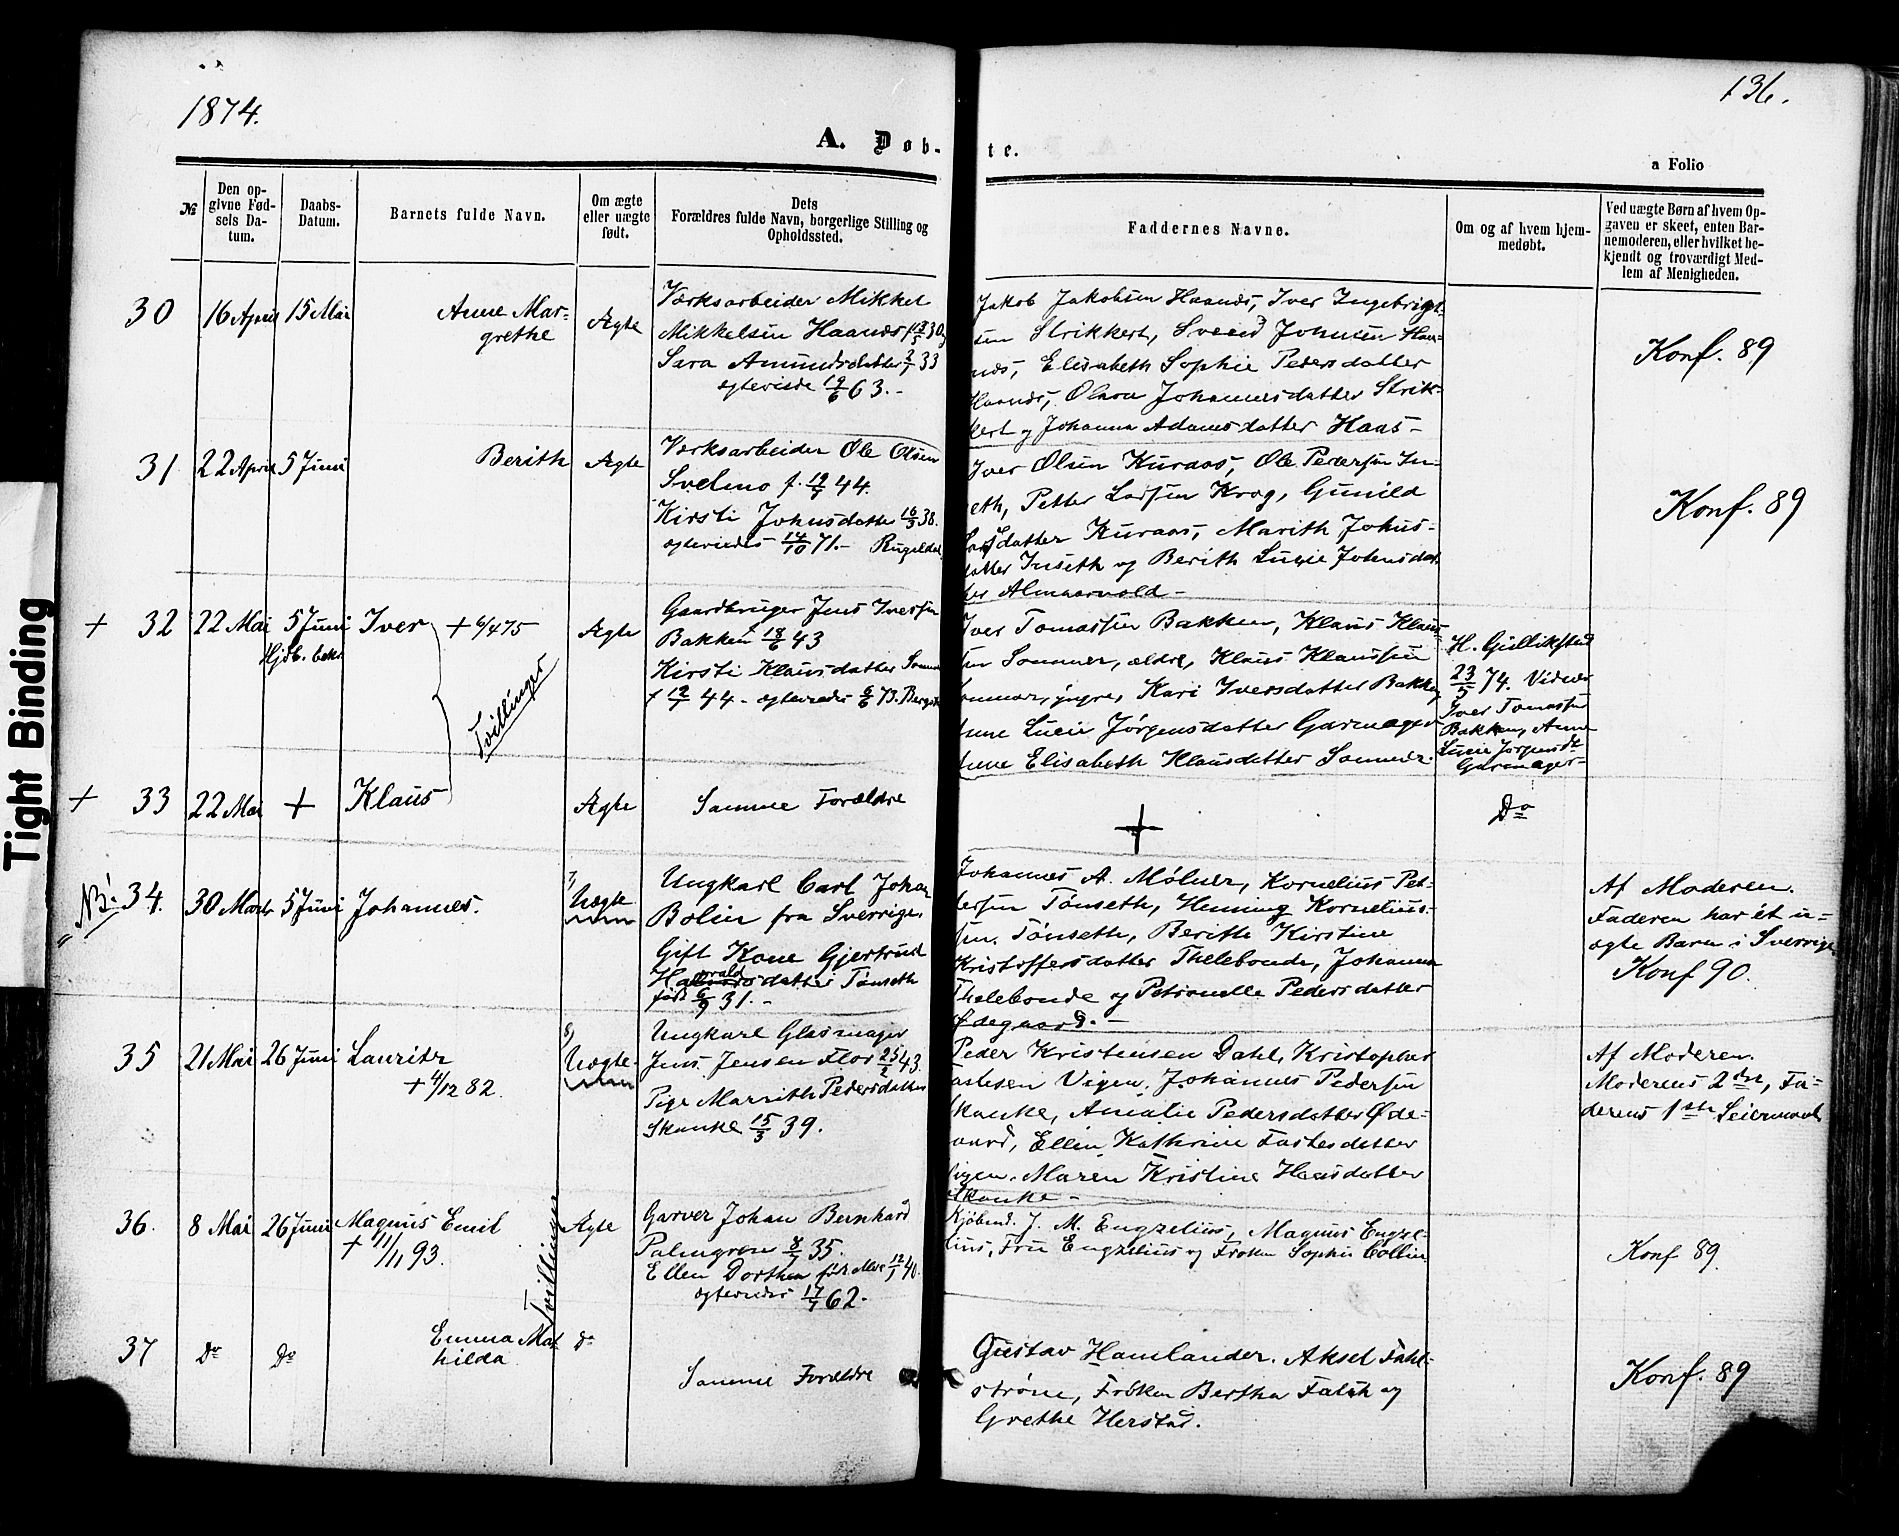 1874.
136.
A. Døb-
te.
a Folio
Tight Binding
№
Den op-
givne Fød-
sels Da-
tum.
Daabs-
Datum.
Barnets fulde Navn.
Om ægte
eller uægte
født.
Dets
Forældres fulde Navn, borgerlige Stilling og
Opholdssted.
Faddernes Navne.
Om og af hvem hjem-
medøbt.
Ved uægte Børn af hvem Op-
gaven er skeet, enten Bar-
nemoderen, eller hvilket be-
kjendt og troværdigt Med-
lem af Menigheden.
30
16 April
15 Mai
Anne Mar-
grethe
Ægte
Værksarbeider Mikkel
Mikkelsen Haanæs
Sara Amundsdatter 33
ægteviede 19/6 63.-
Jakob Jakobsen Haanæs, Iver Ingebrigt-
sen Strikkert, Svend Johnsen Haa-
næs, Elisabeth Sophie Pedersdatter
Haanæs, Olava Johannesdatter Strik-
kert og Johanna Adamsdatter Haas-
Konf. 89
31
22 April
5 Juni
Berith
Ægte
Værksarbeider Ole Olsen
Svelmo f. 44.
Kirsti Johnsdatter 38.
ægteviedes 14/10 71.- Rugeldal
Iver Olsen Kuraas, Ole Pedersen In-
seth, Petter Larsen Krog, Gunild
datter Kuraas, Marith Johns-
datter Inseth og Berith Lucie Johnsdat-
ter Almaasvold-
Konf. 89
+ 32
22 Mai
5 Juni
Hjdb. bekr.
Iver + 6/4 75
Tvillinger
Ægte
Gaardbruger Jens Iversen
Bakken 18/6 43
Kirsti Klausdatter Sommer
f 44 - ægteviedes 73.
Iver Tomassen Bakken, Klaus Klaus-
sen Sommer, ældre, Klaus Klaussen
Sommer, yngre, Kari Iversdatter Bakken
Anne Lucie Jørgensdatter Garmager
Anne Elisabeth Klausdatter Sommer.
H. Gullikstad
23/5 74. Vidner
Iver Tomassen
Bakken, Anne
Lucie Jørgensdt
Garmager
+ 33
22 Mai
+
Klaus
Ægte
Samme Forældre
+
Do
NB. 34.
30 Marts
5 Juni
Johannes.
7,
Uægte
Ungkarl Carl Johan
Bolin fra Sverrige.
Gift Kone Gjertrud
Haraldsdatter Tønseth
født 6/9 31.-
Johannes A. Mølner, Kornelius Pet-
tersen Tønseth, Henning Kornelius-
sen Tønseth, Berith Kirstine
Kristoffersdatter Thelebonde, Johanna
Thelebonde og Petronelle Pedersdatter
Ødegaard.-
Af Moderen.
Faderen har ét u-
ægte Barn i Sverrige
Konf 90.
35
21 Mai
26 Juni
Lauritz
+ 4/12 82.
8,
Uægte
Ungkarl Glasmager
Jens Jensen Flor 43.
Pige Marrith Pedersdatter
Skanke 15/3 39.
Peder Kristensen Dahl, Kristopher
Fastesen Vigen, Johannes Pedersen
Skanke, Amalie Pedersdatter Øde-
gaard, Ellen Kathrine Fastesdatter
Vigen. Maren Kristine Hansdatter
Skanke -
Af Moderen.
Moderens 2det, Fa-
derens 1ste Leiermaal
36.
8 Mai
26 Juni
Magnus Emil
+ 11/11 93.
Tvillinger
Ægte
Garver Johan Bernhard
Palmgren 35.
Ellen Dorthea født 40.
ægteviedes 62.
Kjøbmd. J. M. Engzelius, Magnus Engze-
lius, Fru Engzelius og Frøken Sophie Collin
Konf 89.
37
Do
Do
Emma Mat-
hilda
do
Samme Forældre
Gustav Hamlander. Aksel Fahl-
strøm, Frøken Bertha Falck og
Grethe Herstad.
Konf. 89